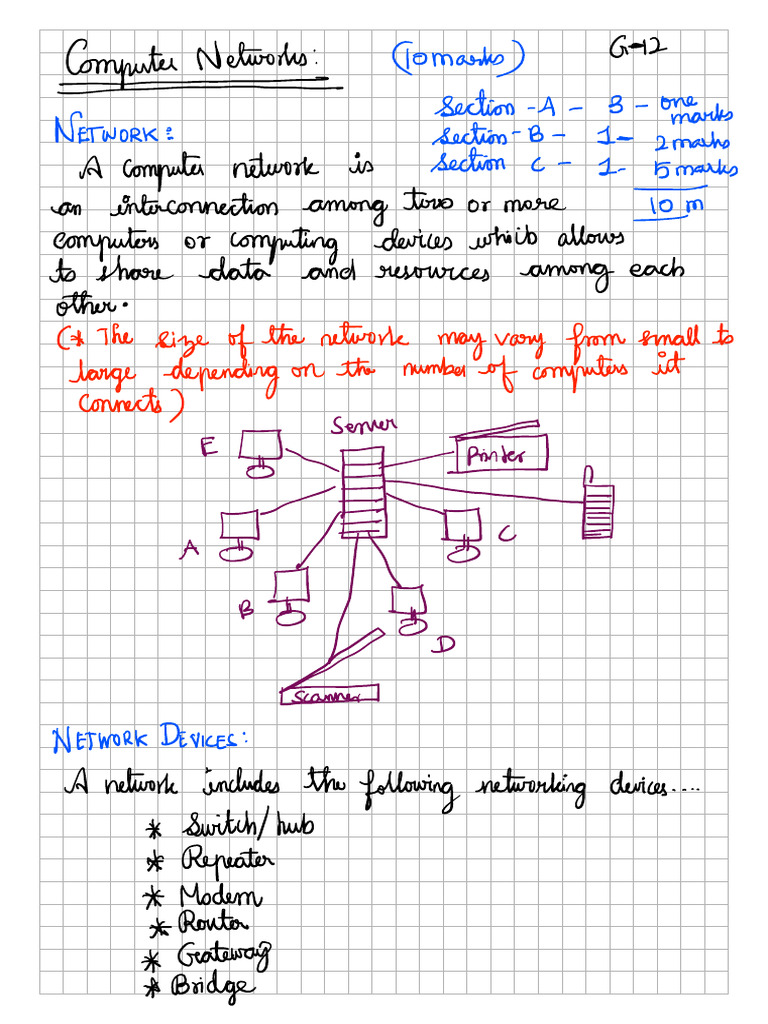 Computer Networks: (10 marks) G-12
Section - A - 3 - one marks
Section - B - 1 - 2 marks
Section C - 1 - 5 marks
10 m
NETWORK:
A computer network is
an interconnection among two or more
computers or computing devices which allows
to share data and resources among each
other.
(* The size of the network may vary from small to
large depending on the number of computers it
connects)
Server
E
Printer
A
C
B
D
Scanner
NETWORK DEVICES:
A network includes the following networking devices....
* Switch/hub
* Repeater
* Modem
* Router
* Gateway
* Bridge